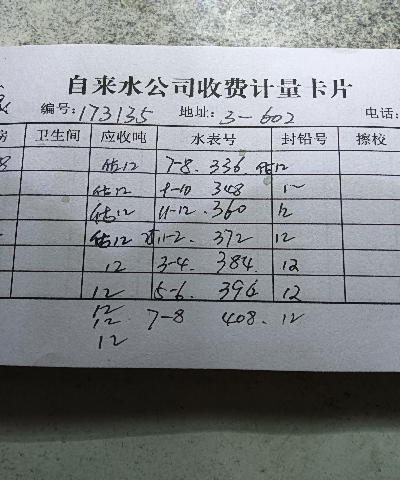 自来水公司收费计量卡片
编号: 173135 地址: 3-602 电话:
房 卫生间 应收吨 水表号 封铅号 擦校
估12 7-8. 336 估12
估12 9-10 348 12
估12 11-12. 360 12
估12 1-2. 372 12
12 3-4. 384. 12
12 5-6. 396 12
12
12 7-8 408. 12
12